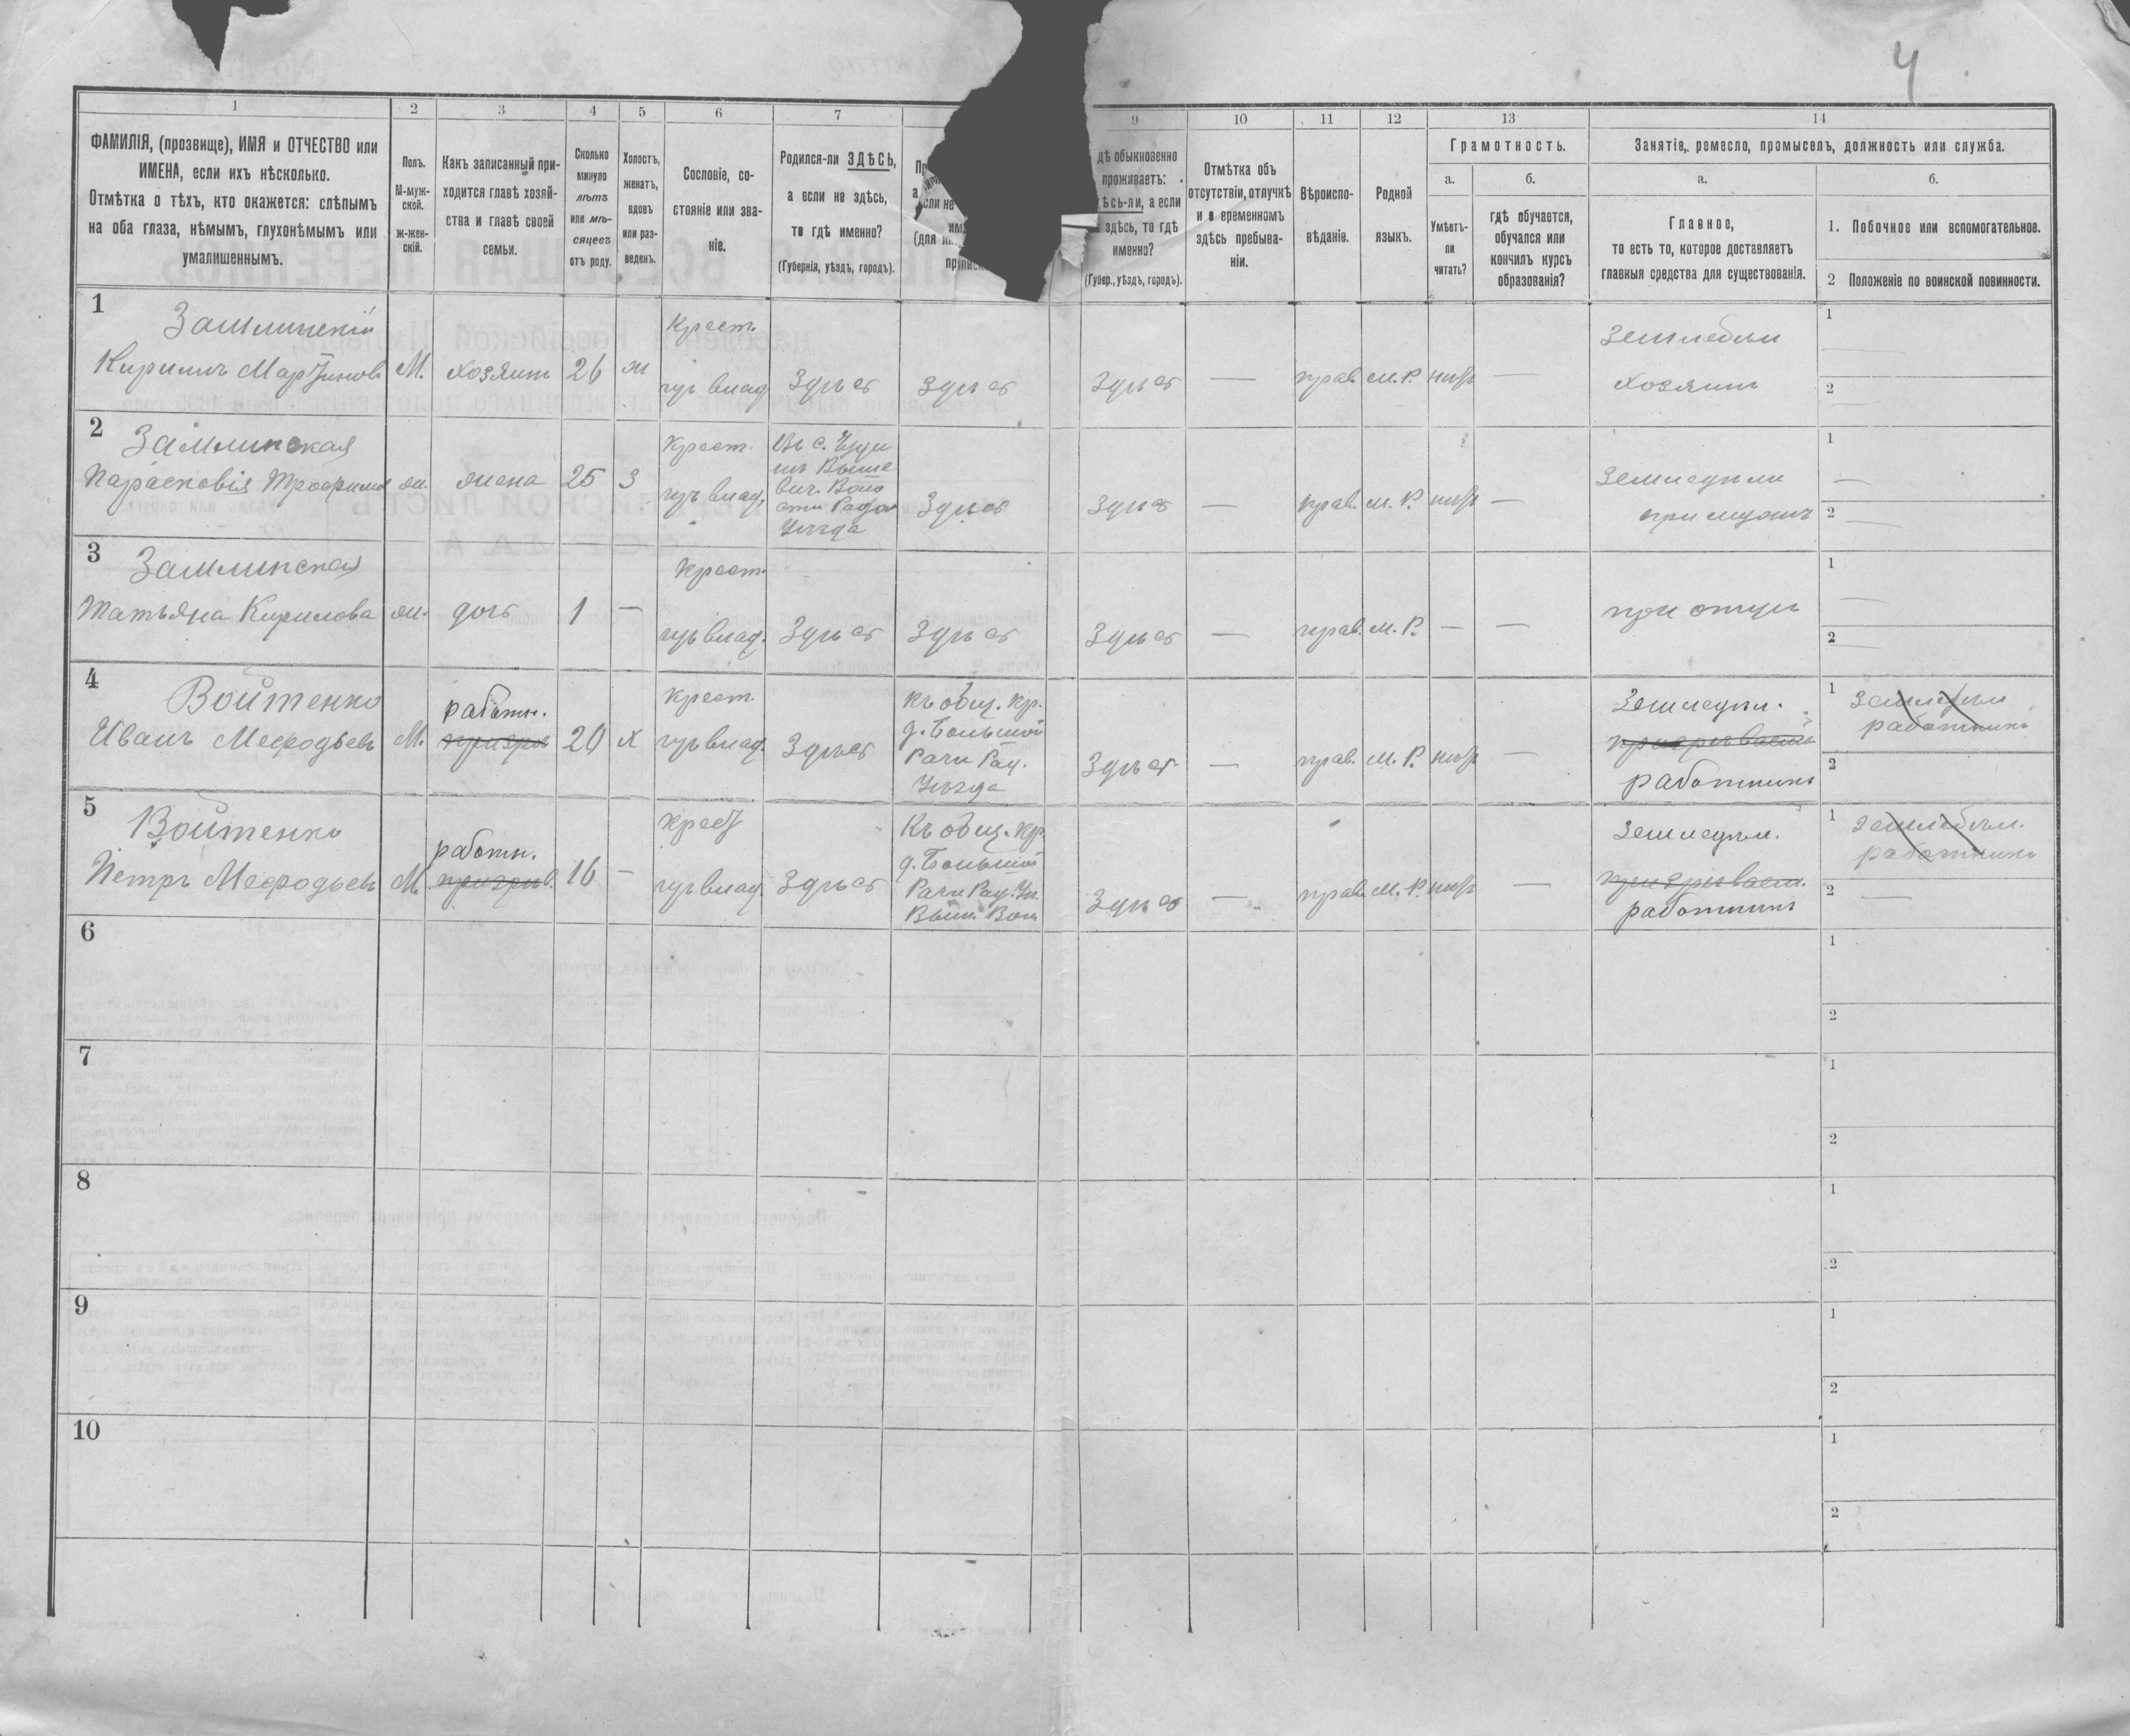 4
1 2 3 4 5 6 7 9 10 11 12 13 14
ФАМИЛІЯ, (прозвище), ИМЯ и ОТЧЕСТВО или
ИМЕНА, если ихъ нѣсколько.
Отмѣтка о тѣхъ, кто окажется: слѣпымъ
на оба глаза, нѣмымъ, глухонѣмымъ или
умалишеннымъ.
Полъ.
М-муж-
ской.
ж-жен-
скій.
Какъ записанный при-
ходится главѣ хозяй-
ства и главѣ своей
семьи.
Сколько
минуло
лѣтъ
или мѣ-
сяцевъ
отъ роду.
Холостъ,
женатъ,
вдовъ
или раз-
веденъ.
Сословіе, со-
стояніе или зва-
ніе.
Родился-ли ЗДѢСЬ,
а если не здѣсь,
то гдѣ именно?
(Губернія, уѣздъ, городъ).
Пр
а
сли не
им
(для
приписк
дѣ обыкновенно
проживаетъ:
ѣсь-ли, а если
здѣсь, то гдѣ
именно?
(Губер., уѣздъ, городъ).
Отмѣтка объ
отсутствіи, отлучкѣ
и о временномъ
здѣсь пребыва-
ніи.
Вѣроиспо-
вѣданіе.
Родной
языкъ.
Грамотность.
а.
Умѣетъ-
ли
читать?
б.
гдѣ обучается,
обучался или
кончилъ курсъ
образованія?
Занятіе, ремесло, промыселъ, должность или служба.
а.
Главное,
то есть то, которое доставляетъ
главныя средства для существованія.
б.
1. Побочное или вспомогательное.
2 Положеніе по воинской повинности.
1
Замлинскій
Кирилъ Мартиновъ
М. хозяинъ 26 ж
Крест.
гувлад
Здѣсь Здѣсь Здѣсь — прав. м. р. —
Земледѣл
хозяинъ
1
2
2
Замлинская
Парасковія Трофимов
ж. жена 25 З
Крест.
Въ с.
Выше
вич. Воло
сти Радом
Уѣзда
Здѣсь Здѣсь — прав. м. р. —
Земледѣли
при мужѣ
1 —
2 —
3
Замлинская
Татьяна Кирилова
ж. дочь 1 —
Крест.
Здѣсь Здѣсь Здѣсь — прав. м. р. — —
при отцѣ
1 —
2 —
4
Войтенко
Иванъ Мефодьевъ
М.
работн.
20 х
Крест.
Здѣсь
Къ общ. кр.
д. Большой
Рачи Рад.
Уѣзда
Здѣсь — прав. м. р. —
Земледѣл.
работникъ
1 Земледѣл
работникъ
2
5
Войтенко
Петръ Мефодьевъ
М.
работн.
16 —
Крест
Здѣсь
Къ общ. кр.
д. Большой
Рачи Рад. Уѣ.
Выш. Вол
Здѣсь — прав. м. р. —
Земледѣл.
работникъ
1 Земледѣл.
работникъ
2 —
6
1
2
7
1
2
8
1
2
9
1
2
10
1
2